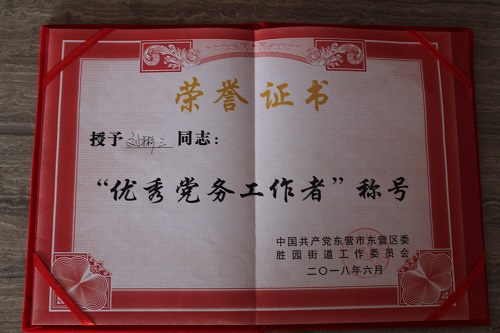 荣誉证书
授予 同志：
“优秀党务工作者”称号
中国共产党东营市东营区委
胜园街道工作委员会
二〇一八年六月